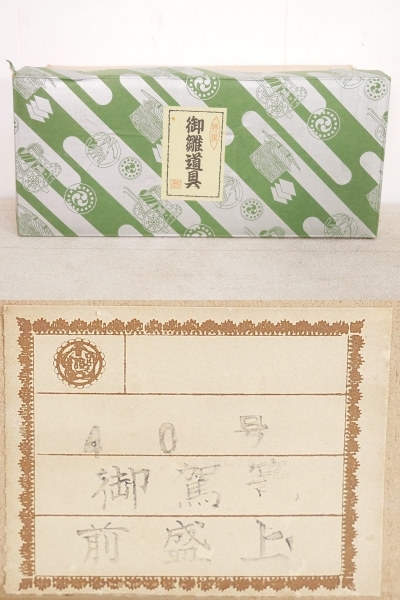 御雛道具
40号
御駕籠
前盛上